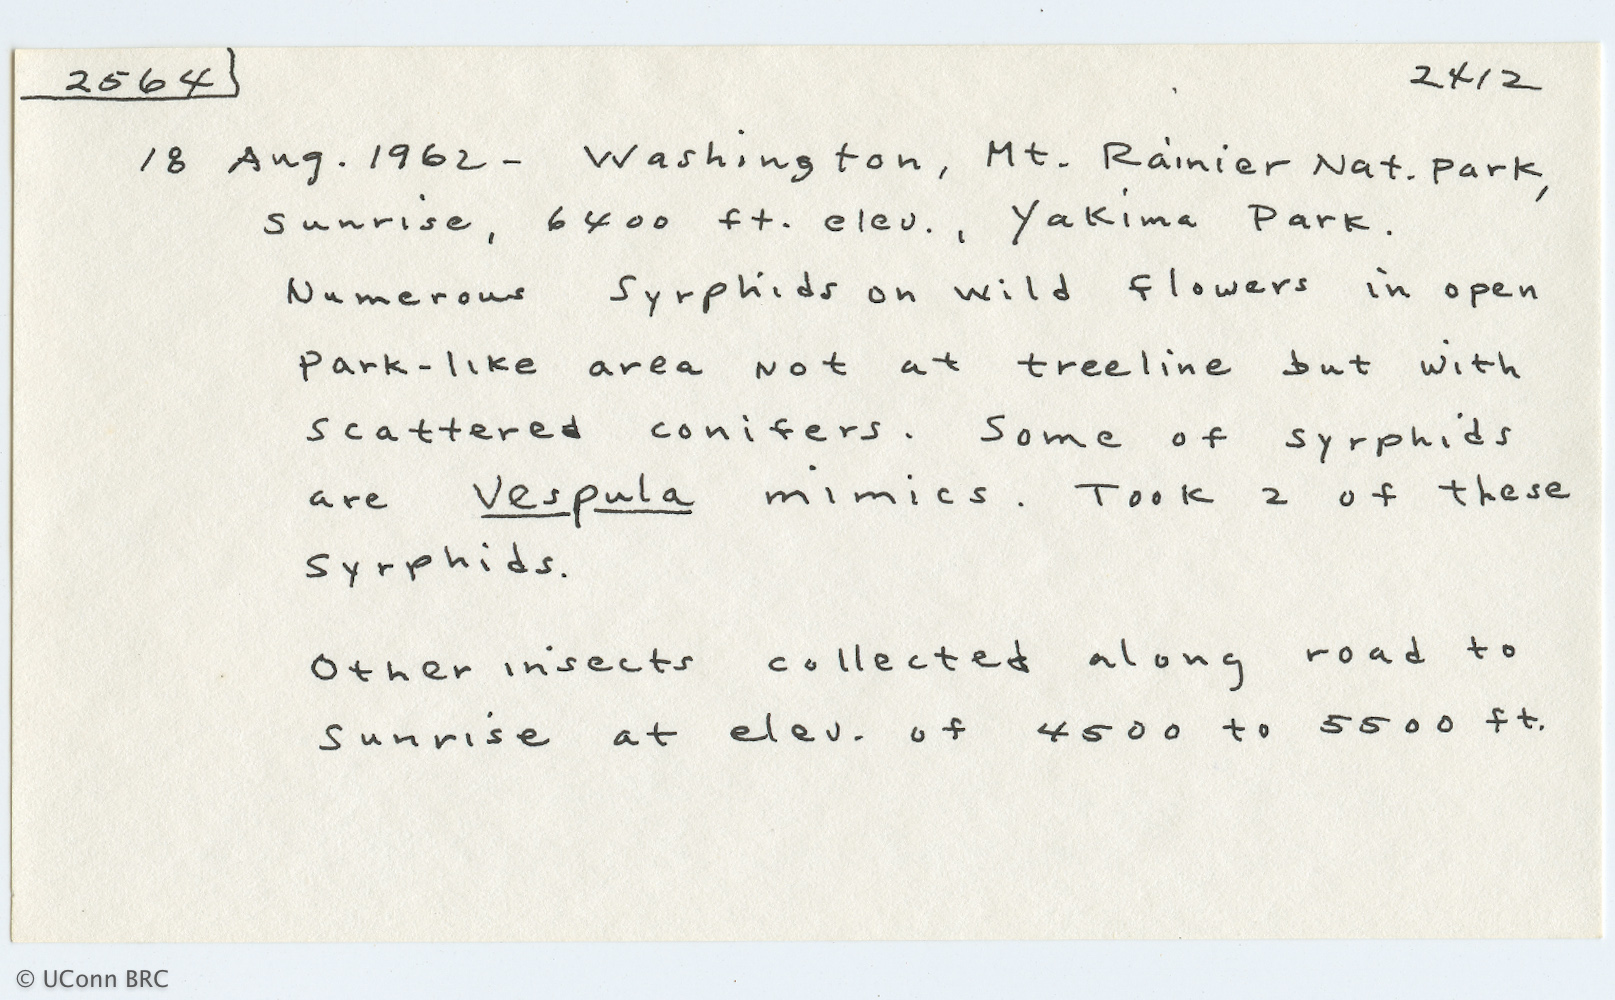 2564 2412
18 Aug. 1962 - Washington, Mt. Rainier Nat. Park,
Sunrise, 6400 ft. elev., Yakima Park.
Numerous Syrphids on wild flowers in open
park-like area not at treeline but with
scattered conifers. Some of syrphids
are Vespula mimics. Took 2 of these
syrphids.
Other insects collected along road to
Sunrise at elev. of 4500 to 5500 ft.
© UConn BRC